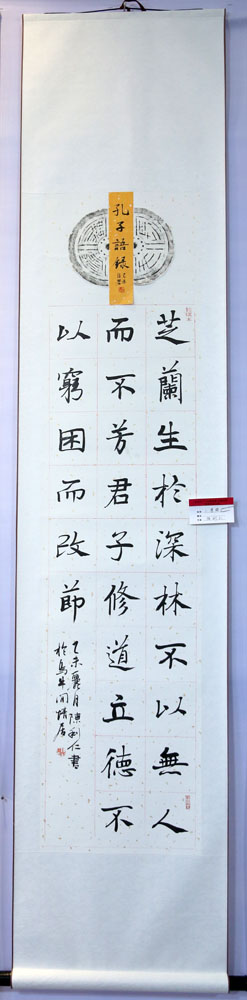 孔子語錄
芝蘭生於深林不以無人
而不芳君子修道立德不
以窮困而改節
乙未 月陳利仁書
於烏牛閒情居